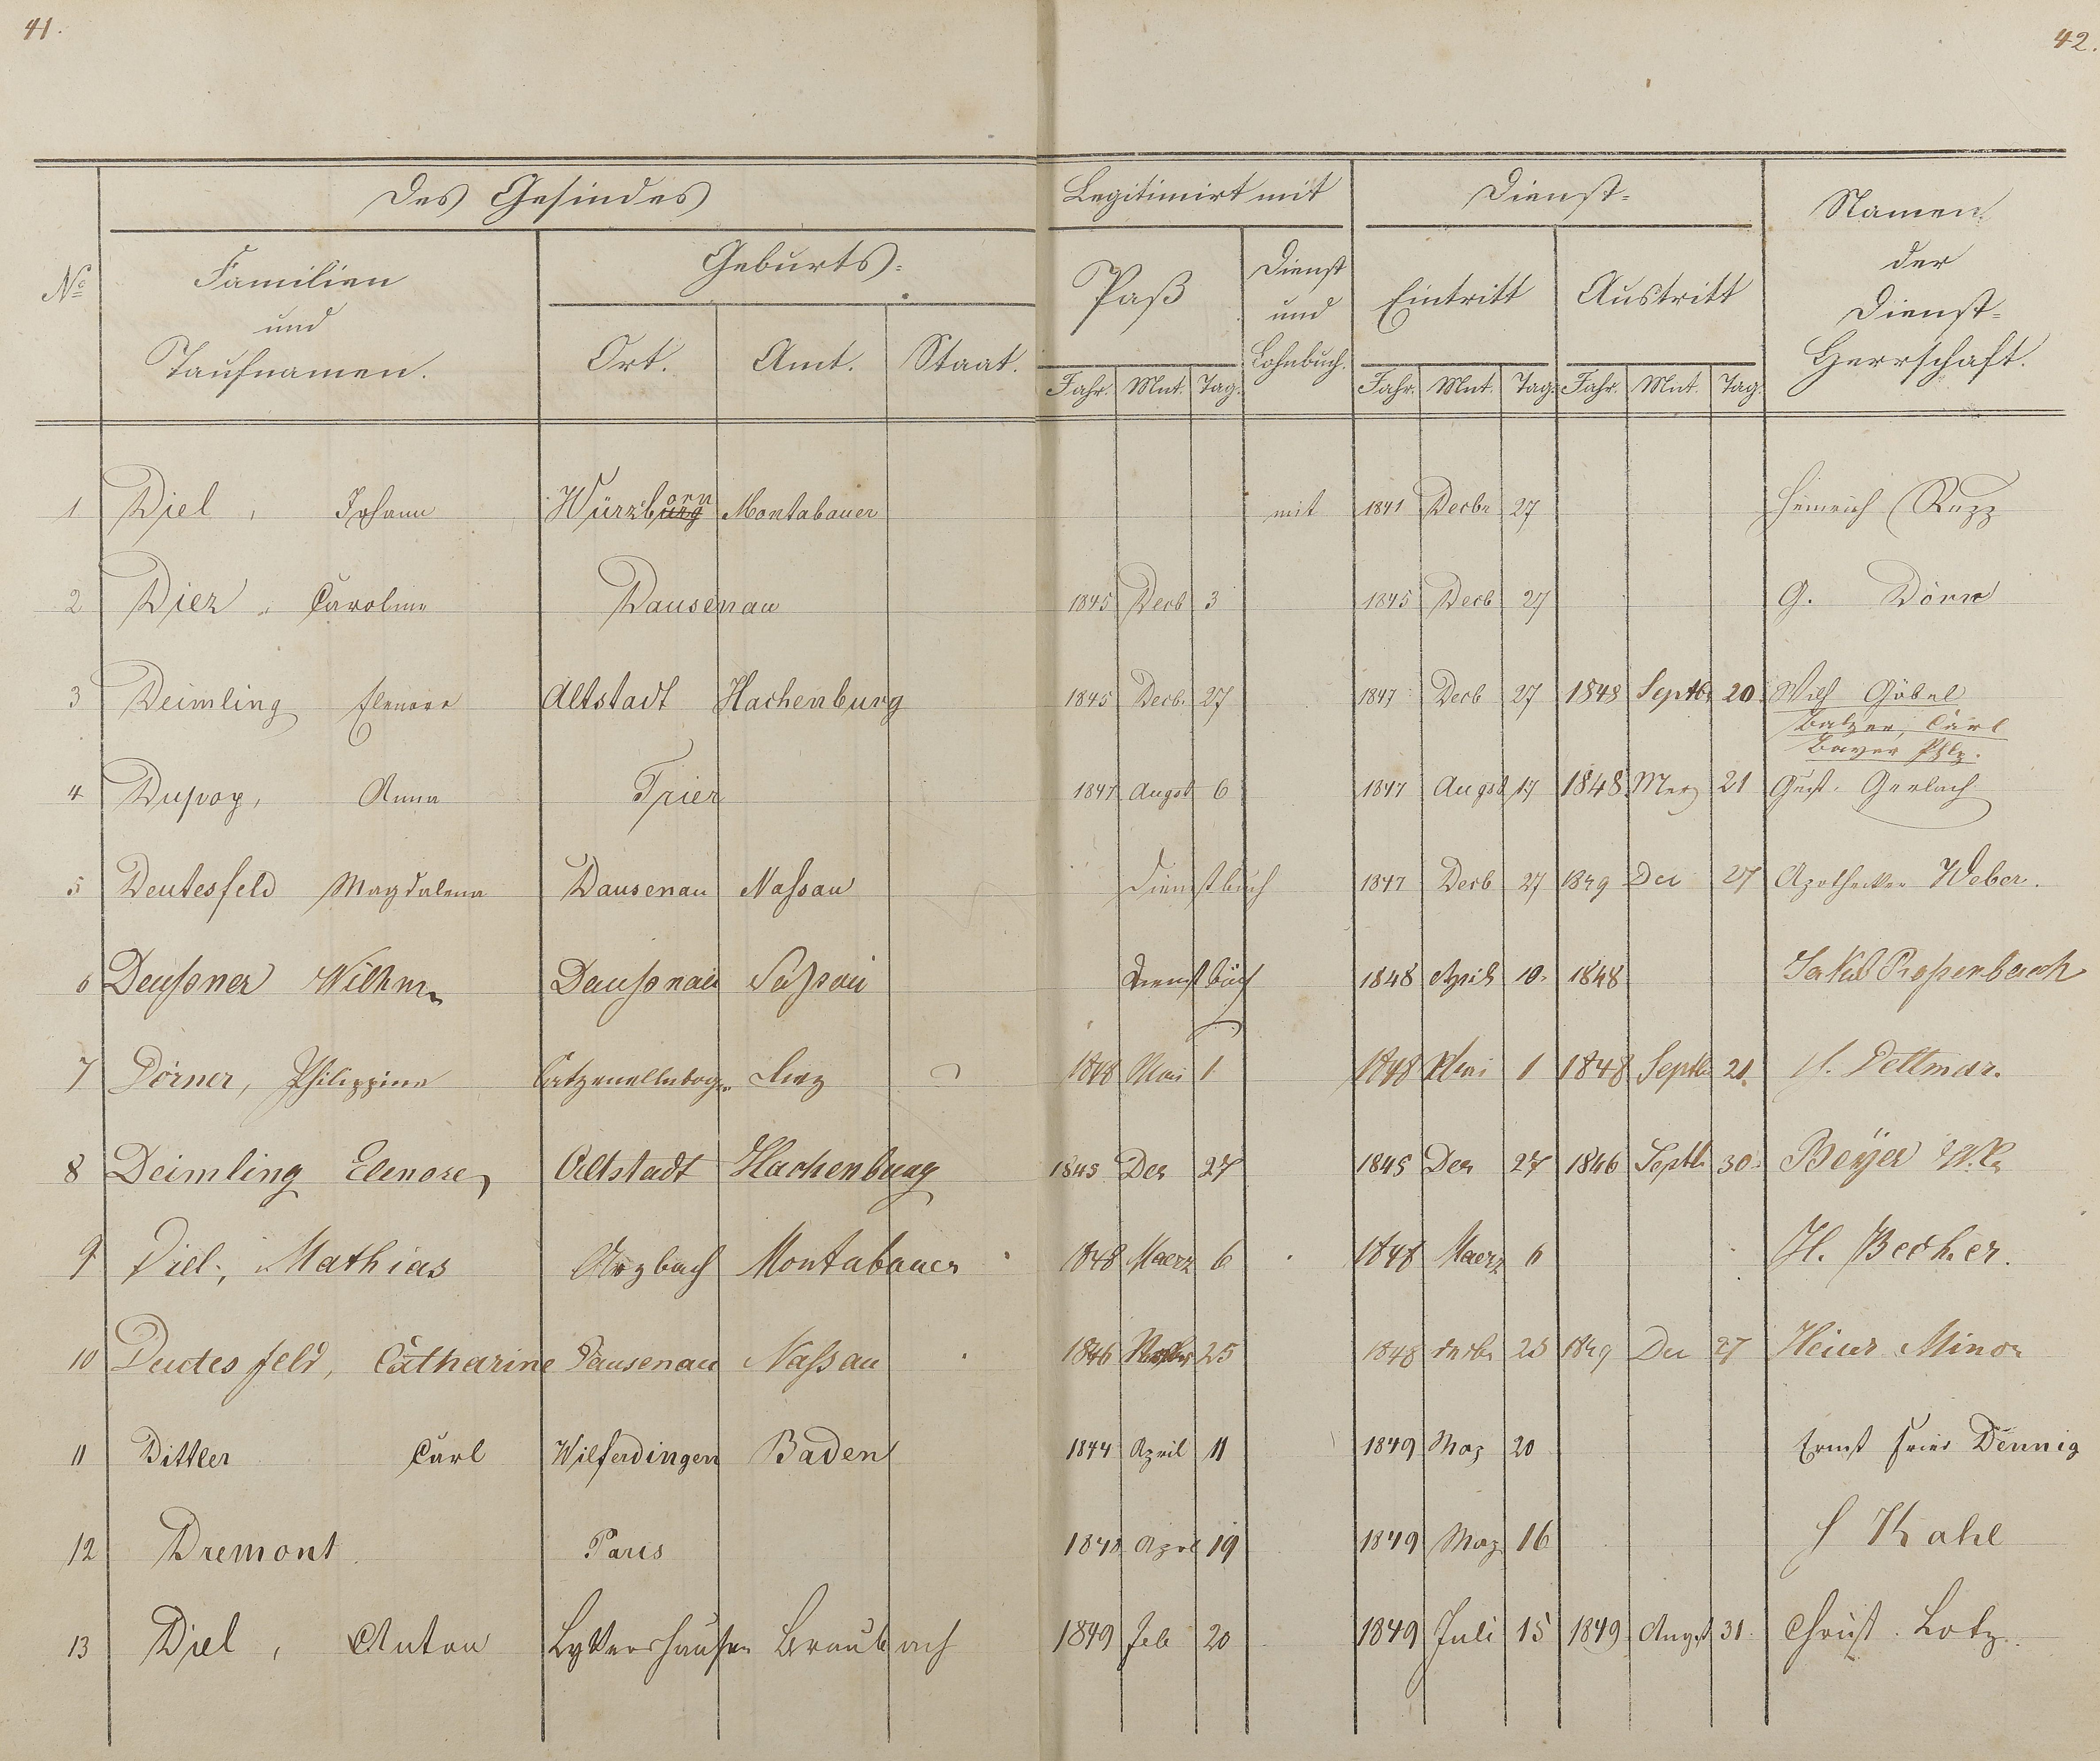 41.
42.
Des Gesindes
Legitimirt mit
Dienst=
Namen
der
Dienst=
Herrschaft.
No
Familien
und
Taufnamen.
Geburts=
Ort. Amt. Staat.
Paß
Dienst
und
Lohnbuch.
Eintritt Austritt
Jahr. Mnt. Tag. Jahr. Mnt. Tag. Jahr. Mnt. Tag.
1 Diel, Johann Würzborn Montabauer mit 1841 Decbr 27 Heinrich Rupp
2 Diez, Caroline Dausenau 1845 Decb 3 1845 Decb 27 G. Dönn
3 Deimling Elenore Altstadt Hachenburg 1845 Decb. 27 1847 Decb 27 1848 Septbr 20 Wilh Göbel
Balzer, Carl
Bayer
4 Dupoy, Anna Trier 1847 Augst 6 1847 Augst 17 1848 Merz 21 Gust. Gerlach
5 Deutesfeld Magdalena Dausenau Nassau Dienstbuch 1847 Decb 27 1849 Dec 27 Apotheker Weber.
6 Deußner Wilhm Daußnau Naßau Dienstbuch 1848 April 10. 1848 Jakob
7 Dörner, Philippine Catzenellnbogen Diez 1848 Mai 1 1848 Mai 1 1848 Septb 21. Dettmar.
8 Deimling Elenore Altstadt Hachenburg 1845 Dec 27 1845 Dec 27 1846 Septb 30. Beÿer
9 Diel, Mathias Arzbach Montabauer 1848 Maerz 6 1848 Maerz 6 H. Becker.
10 Deutesfeld, Catharine Dausenau Nassau 1846 25 1848 Decbr 25 1849 Dec 27 Minor
11 Dittler Carl Wilferdingen Baden 1844 April 11 1849 May 20 Ernst Fried Dennig
12 Dremont Paris 1848 Aprl 19 1849 May 16 Kahl
13 Diel, Anton Lykershausen Braubach 1849 Feb 20 1849 Juli 15 1849 Augst 31. Christ. Lotz.